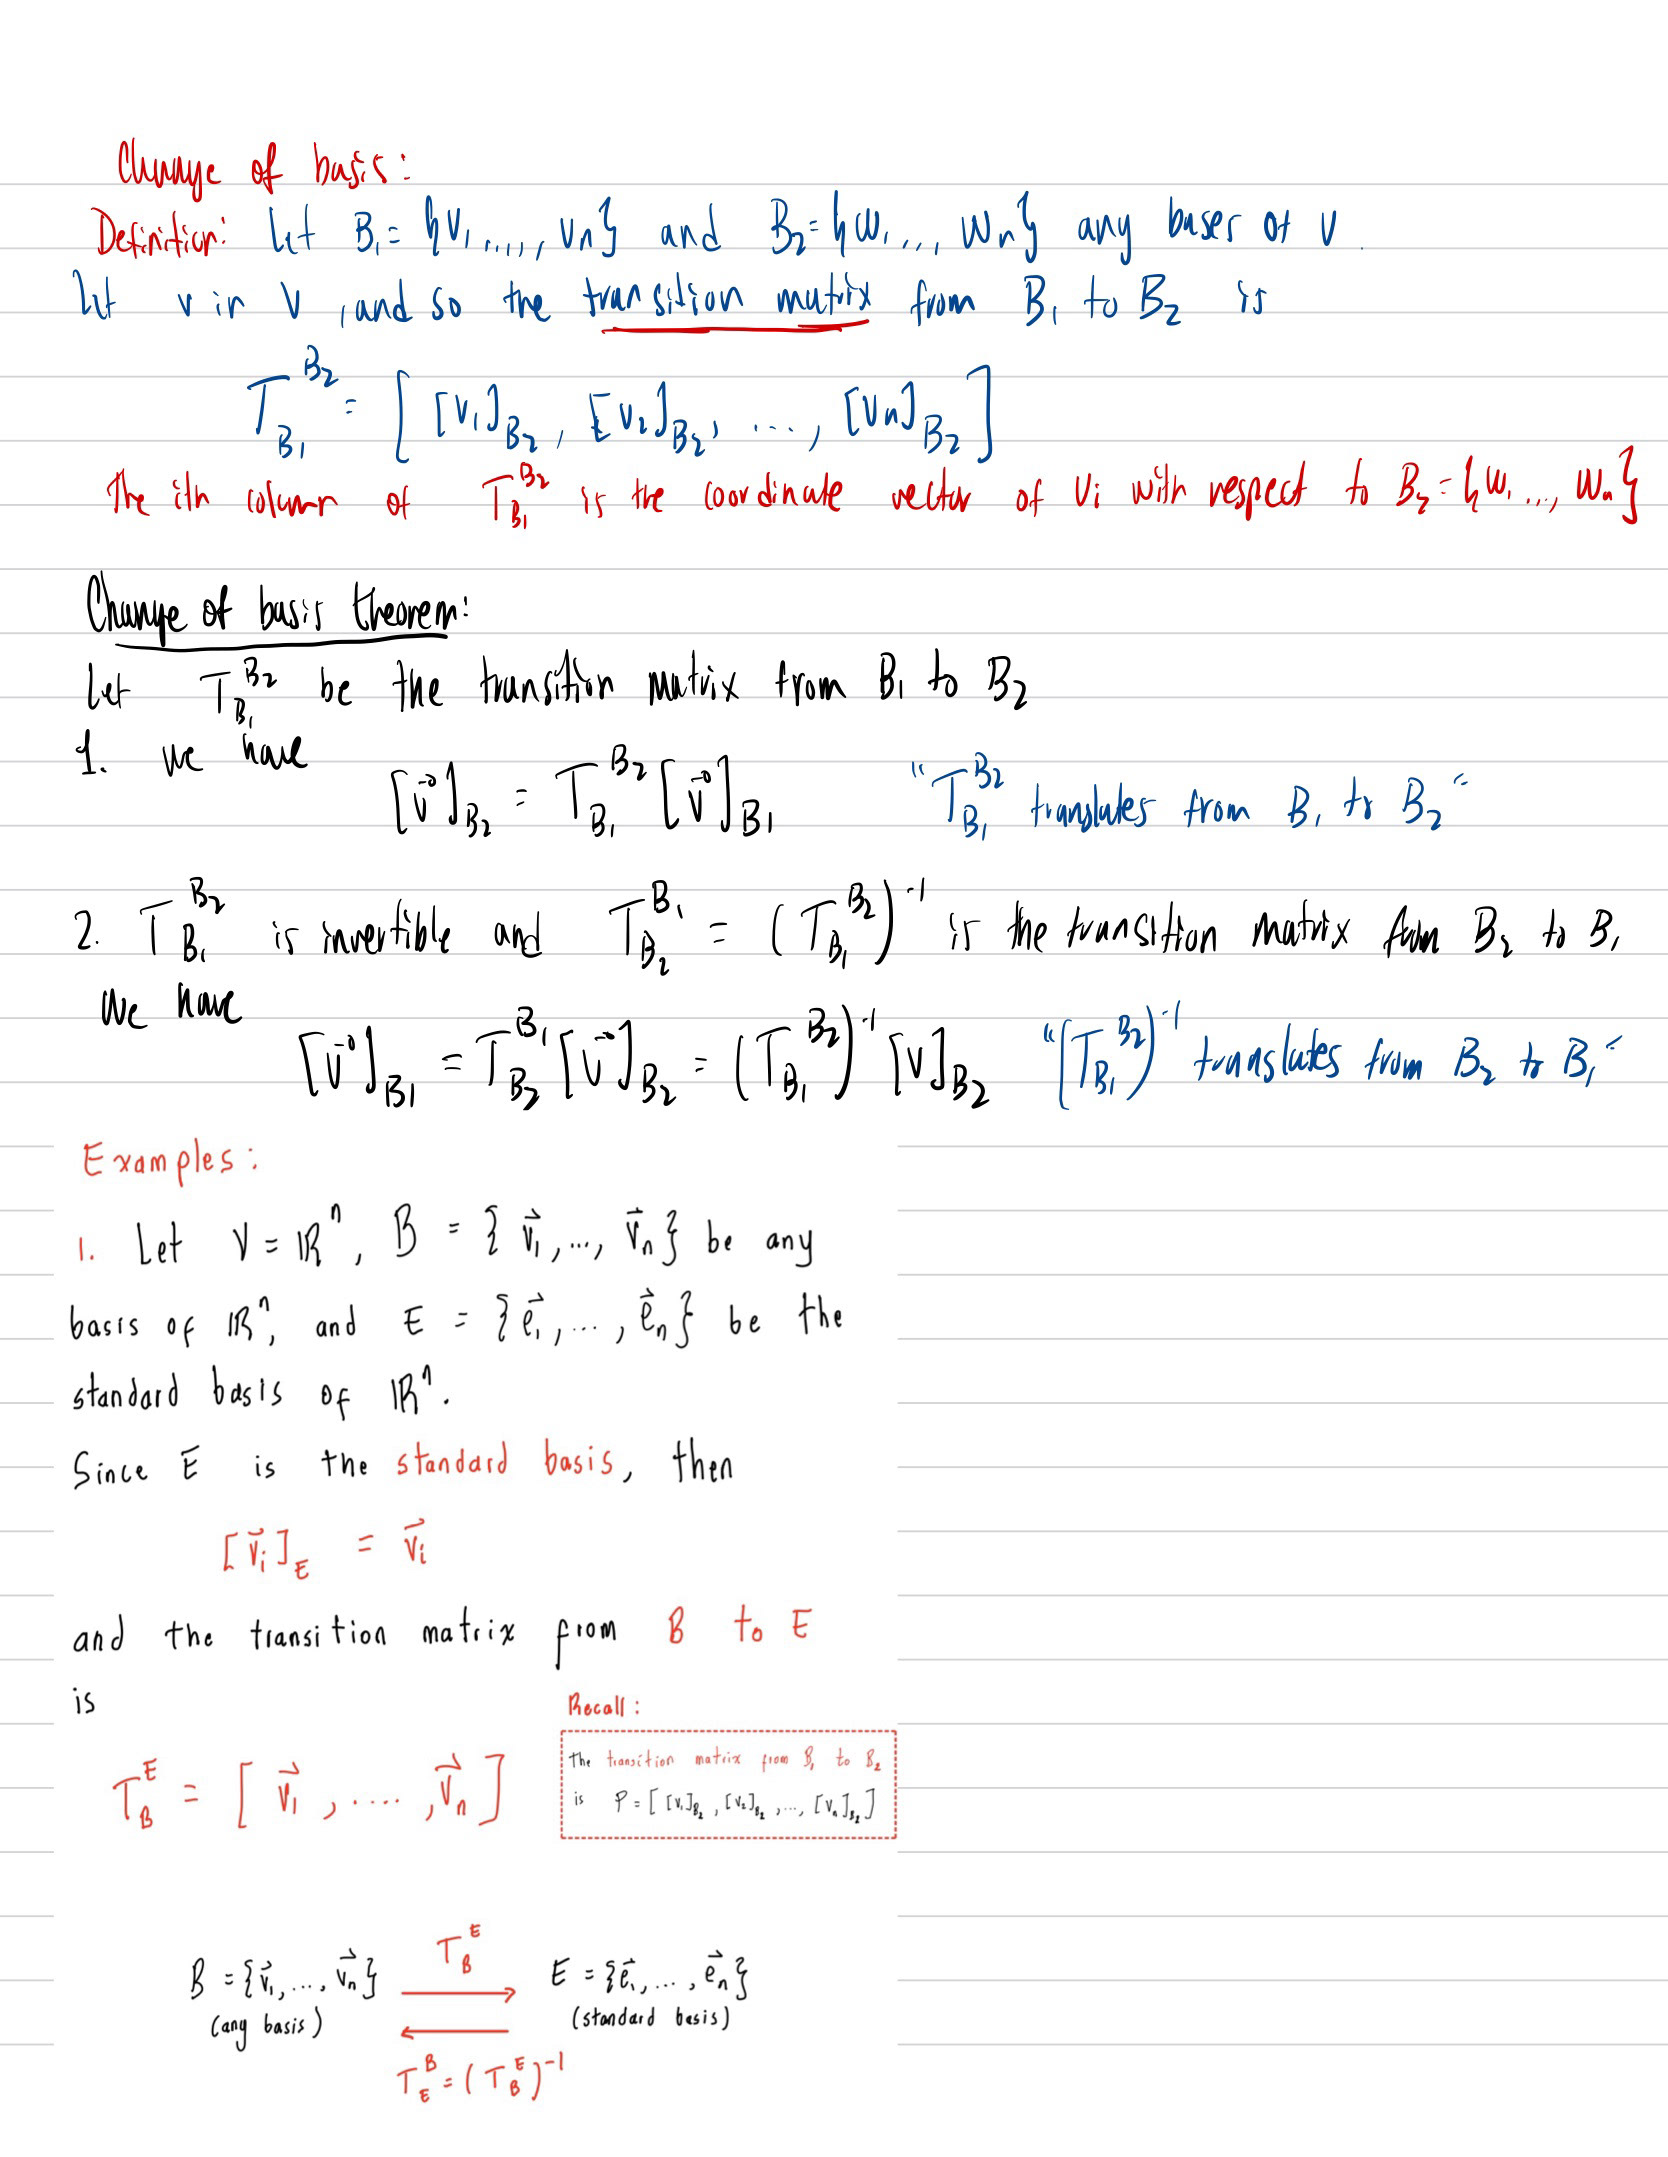 Change of basis:
Definition: Let B₁ = {v₁, ..., vₙ} and B₂ = {w₁, ..., wₙ} any bases of V.
Let v in V, and so the transition matrix from B₁ to B₂ is
T_{B₁}^{B₂} = [ [v₁]_{B₂}, [v₂]_{B₂}, ..., [vₙ]_{B₂} ]
The ith column of T_{B₁}^{B₂} is the coordinate vector of vᵢ with respect to B₂ = {w₁, ..., wₙ}
Change of basis theorem:
Let T_{B₁}^{B₂} be the transition matrix from B₁ to B₂
1. we have
[v⃗]_{B₂} = T_{B₁}^{B₂} [v⃗]_{B₁} "T_{B₁}^{B₂} translates from B₁ to B₂"
2. T_{B₁}^{B₂} is invertible and T_{B₂}^{B₁} = (T_{B₁}^{B₂})⁻¹ is the transition matrix from B₂ to B₁
We have
[v⃗]_{B₁} = T_{B₂}^{B₁} [v⃗]_{B₂} = (T_{B₁}^{B₂})⁻¹ [v]_{B₂} "(T_{B₁}^{B₂})⁻¹ translates from B₂ to B₁"
Examples:
1. Let V = ℝⁿ, B = {v⃗₁, ..., v⃗ₙ} be any
basis of ℝⁿ, and E = {e⃗₁, ..., e⃗ₙ} be the
standard basis of ℝⁿ.
Since E is the standard basis, then
[v⃗ᵢ]_E = v⃗ᵢ
and the transition matrix from B to E
is
T_B^E = [ v⃗₁, ...., v⃗ₙ ]
Recall:
The transition matrix from B₁ to B₂
is P = [ [v₁]_{B₂}, [v₂]_{B₂}, ..., [vₙ]_{B₂} ]
T_B^E
B = {v⃗₁, ..., v⃗ₙ} E = {e⃗₁, ..., e⃗ₙ}
(any basis) (standard basis)
T_E^B = (T_B^E)⁻¹